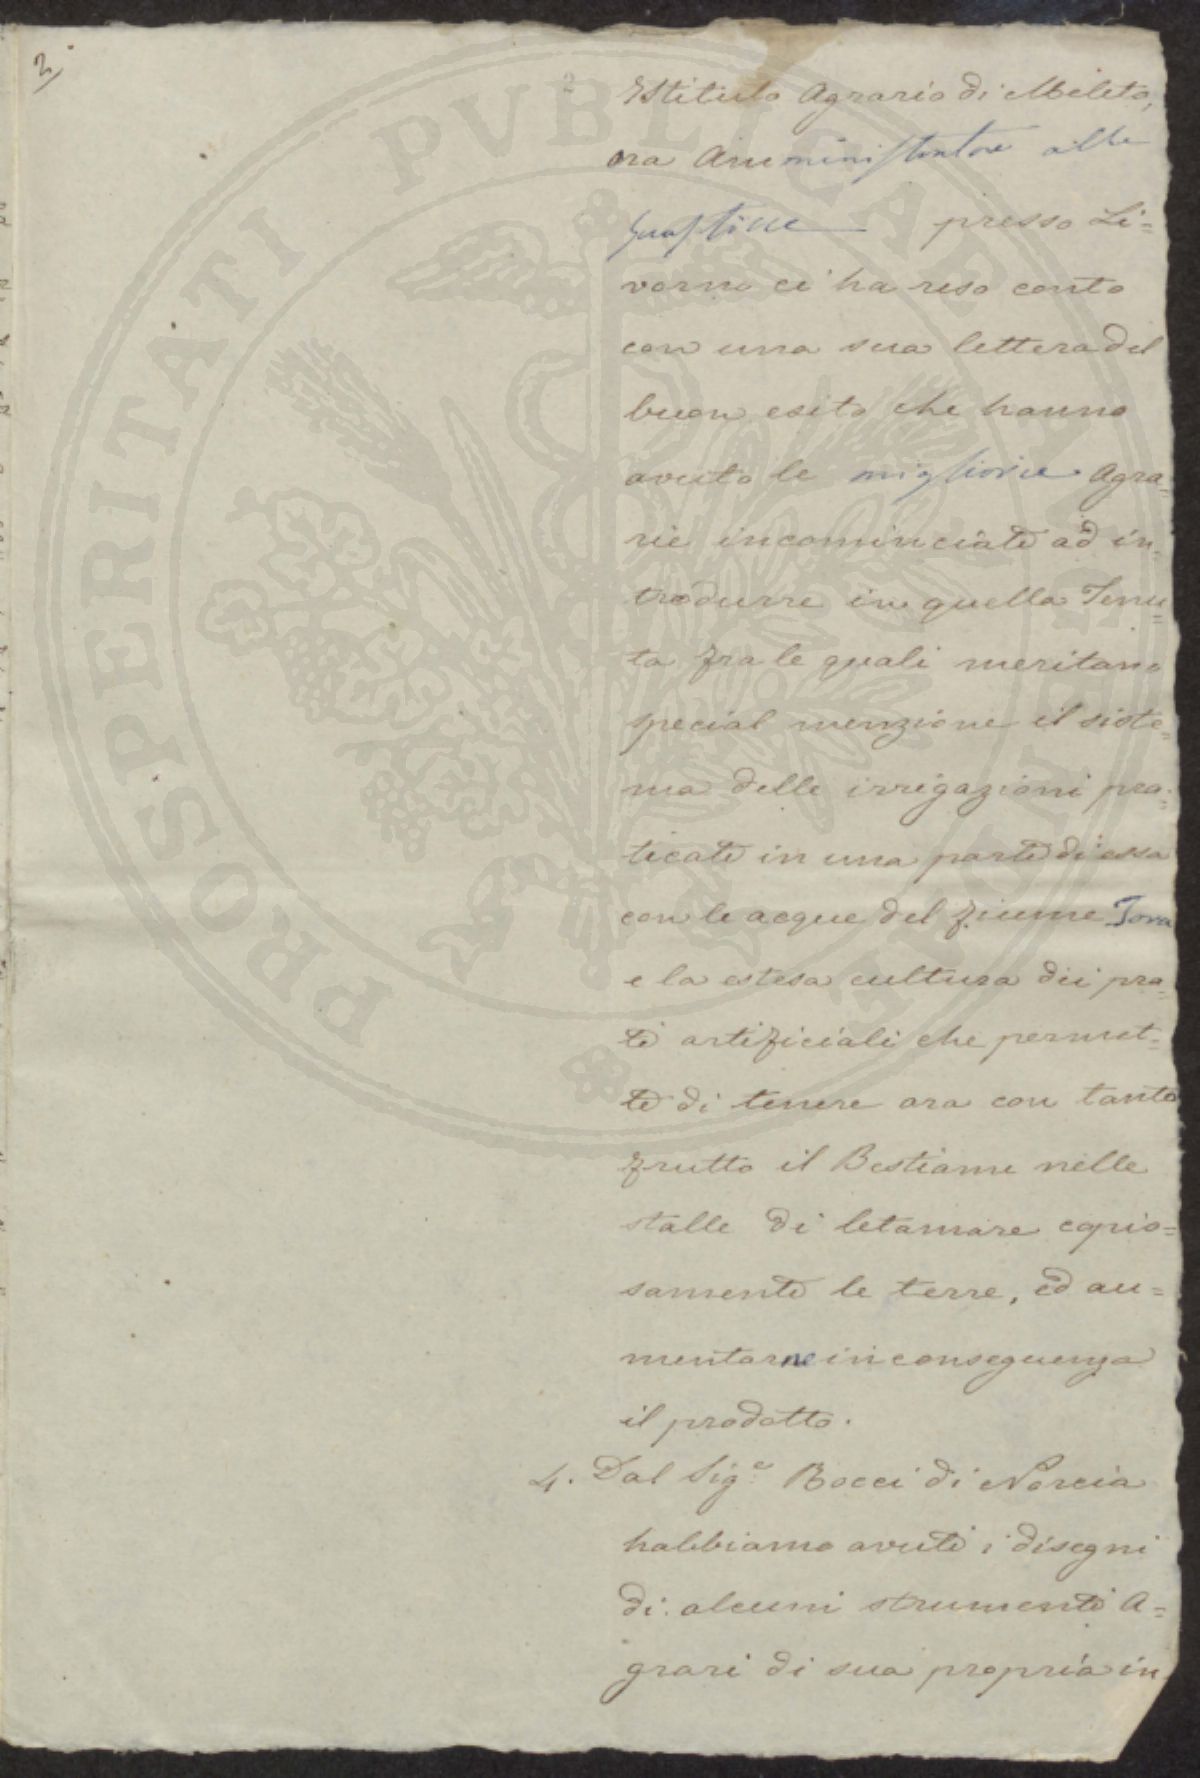 3
2
Istituto Agrario di Meleto,
ora Amministratore alle
Guasticce presso Li=
vorno ci ha reso conto
con una sua lettera del
buon esito che hanno
avuto le migliorie Agra=
rie incominciate ad in=
trodurre in quella Tenu=
ta fra le quali meritano
special menzione il siste=
ma delle irrigazioni pra=
ticate in una parte di essa
con le acque del fiume Tora
e la estesa cultura dei pra=
ti artificiali che permet=
te di tenere ora con tanto
frutto il Bestiame nelle
stalle di letamare copio=
samente le terre, ed au=
mentarne in conseguenza
il prodotto.
4. Dal Sig.e Bocci di Norcia
habbiamo avuti i disegni
di alcuni strumenti A=
grari di sua propria in
PROSPERITATI PVBLICAE